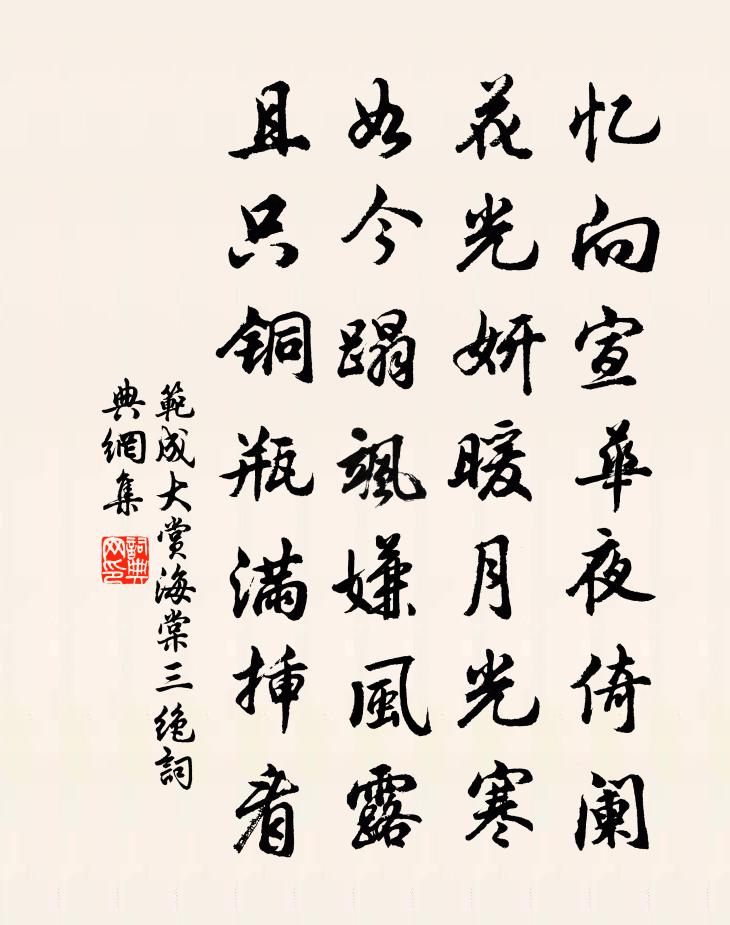 忆向宣华夜倚阑
花光妍暖月光寒
如今蹋飒嫌風露
且只铜瓶满挿看
範成大赏海棠三绝詞
典網集
詞典
网印